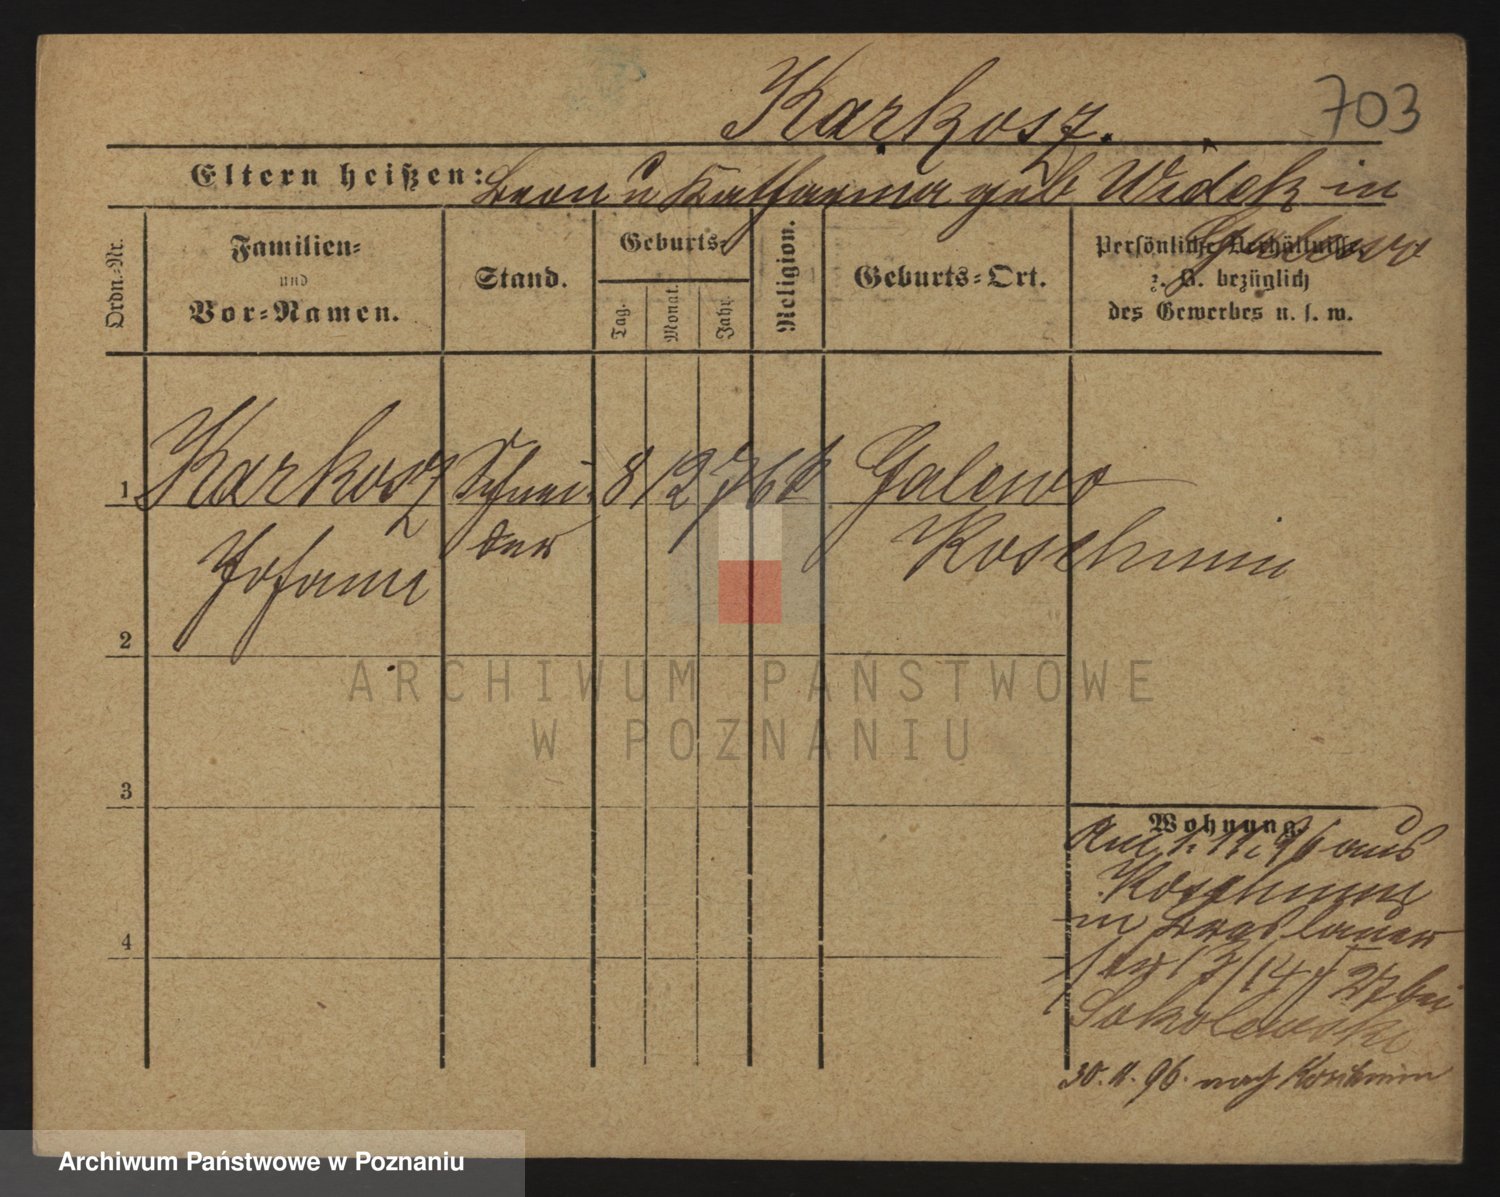 Karkosz.
703
Eltern heißen: Leon u Katharina geb Widek in
Galewo
Ordn.-Nr.
Familien-
und
Vor-Namen.
Stand.
Geburts-
Tag.
Monat.
Jahr.
Religion.
Geburts-Ort.
Persönliche Verhältnisse
z. B. bezüglich
des Gewerbes u. s. w.
1 Karkosz Schnei- 8 12 76 k Galewo
der Koschmin
Johann
2
3
4
Wohnung.
Am 1. 11. 96 aus
Koschmin
in Breslauer
str 13/14 bei
Sokolowski
30. 11. 96. nach Koschmin
ARCHIWUM PAŃSTWOWE
W POZNANIU
Archiwum Państwowe w Poznaniu